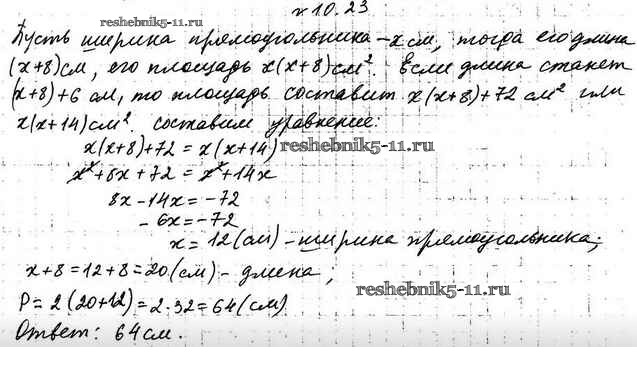 № 10.23
reshebnik5-11.ru
Пусть ширина прямоугольника – x см, тогда его длина
(x+8) см, его площадь x(x+8) см². Если длина станет
(x+8)+6 см, то площадь составит x(x+8)+72 см² или
x(x+14) см². составим уравнение:
x(x+8)+72 = x(x+14) reshebnik5-11.ru
x²+8x+72 = x²+14x
8x-14x=-72
-6x=-72
x=12(см) – ширина прямоугольника;
x+8=12+8=20(см) – длина;
reshebnik5-11.ru
P=2(20+12)=2·32=64(см)
Ответ: 64 см.